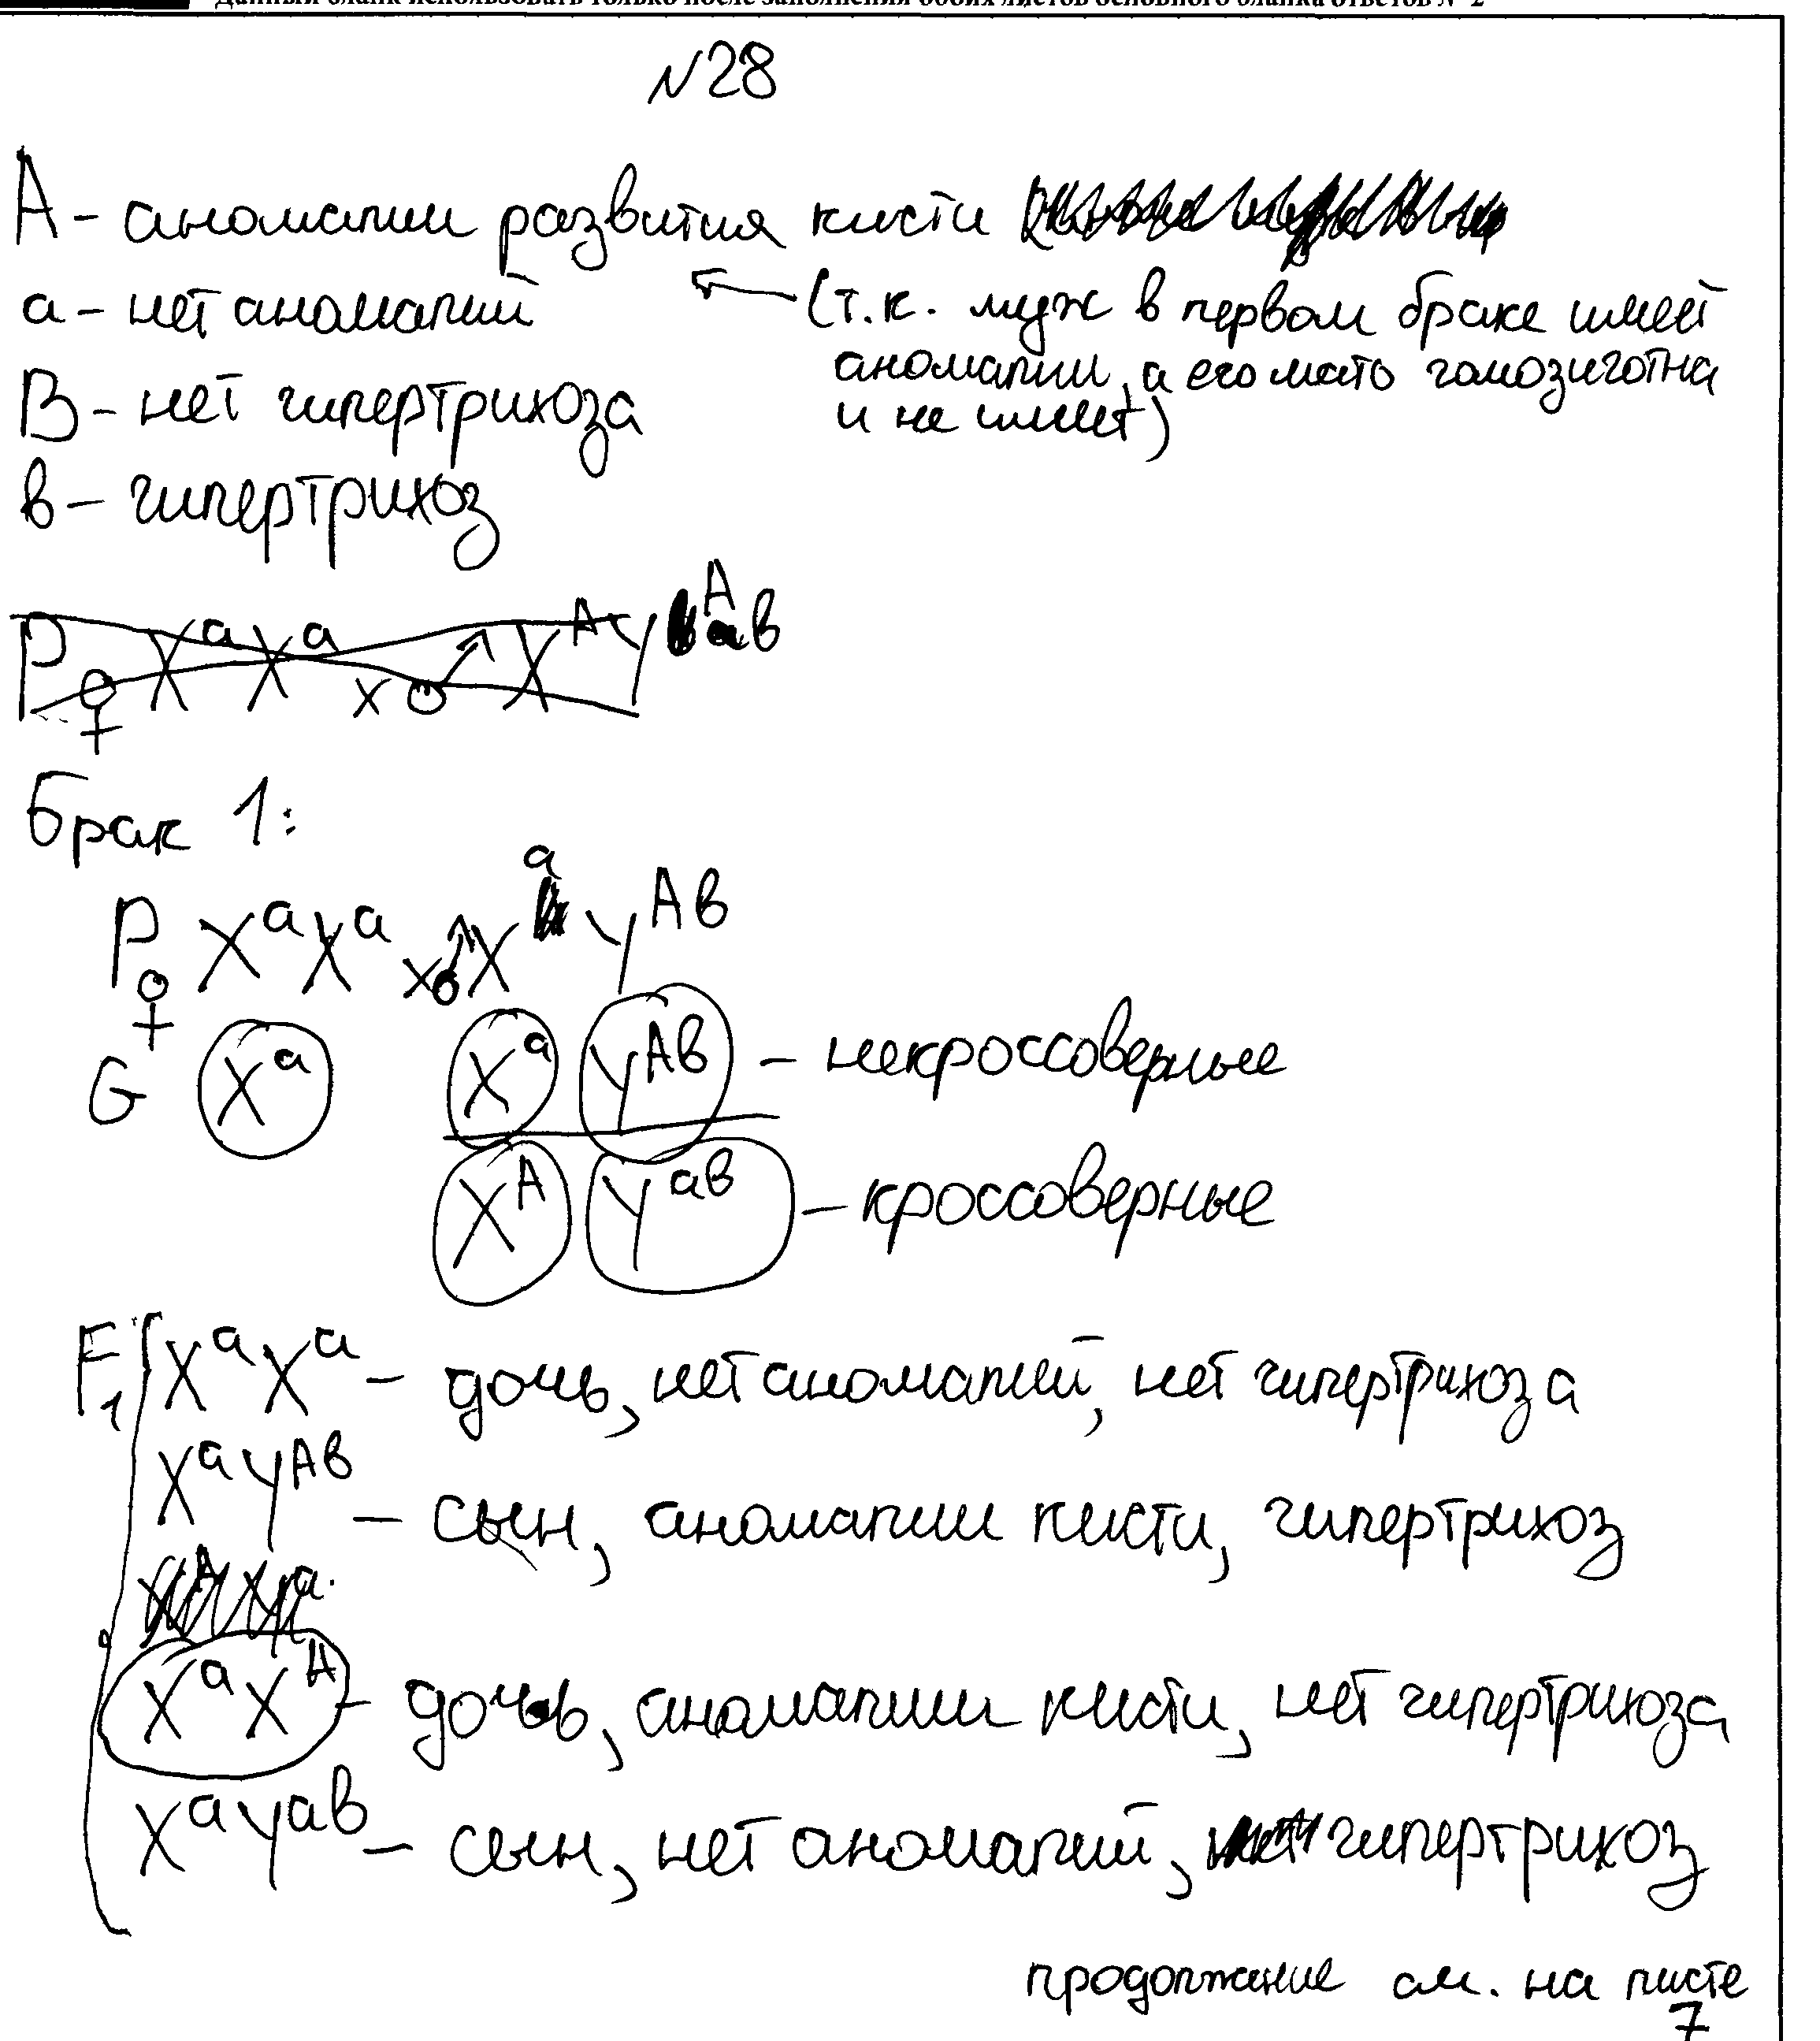 Данный бланк использовать только после заполнения обоих листов основного бланка ответов № 2
№28
A - аномалии развития кисти
a - нет аномалий ← (т.к. муж в первом браке имеет
аномалии, а его мать гомозиготна
и не имеет)
B - нет гипертрихоза
в - гипертрихоз
P ♀ XᵃXᵃ x ♂ XᴬYᴬᵇ
Брак 1:
P ♀ XᵃXᵃ x ♂ XᵃYᴬᵇ
G Xᵃ Xᵃ Yᴬᵇ - некроссоверные
Xᴬ Yᵃᵇ - кроссоверные
F₁ XᵃXᵃ - дочь, нет аномалий, нет гипертрихоза
XᵃYᴬᵇ - сын, аномалии кисти, гипертрихоз
XᵃXᴬ - дочь, аномалии кисти, нет гипертрихоза
XᵃYᵃᵇ - сын, нет аномалий, гипертрихоз
продолжание см. на листе
7